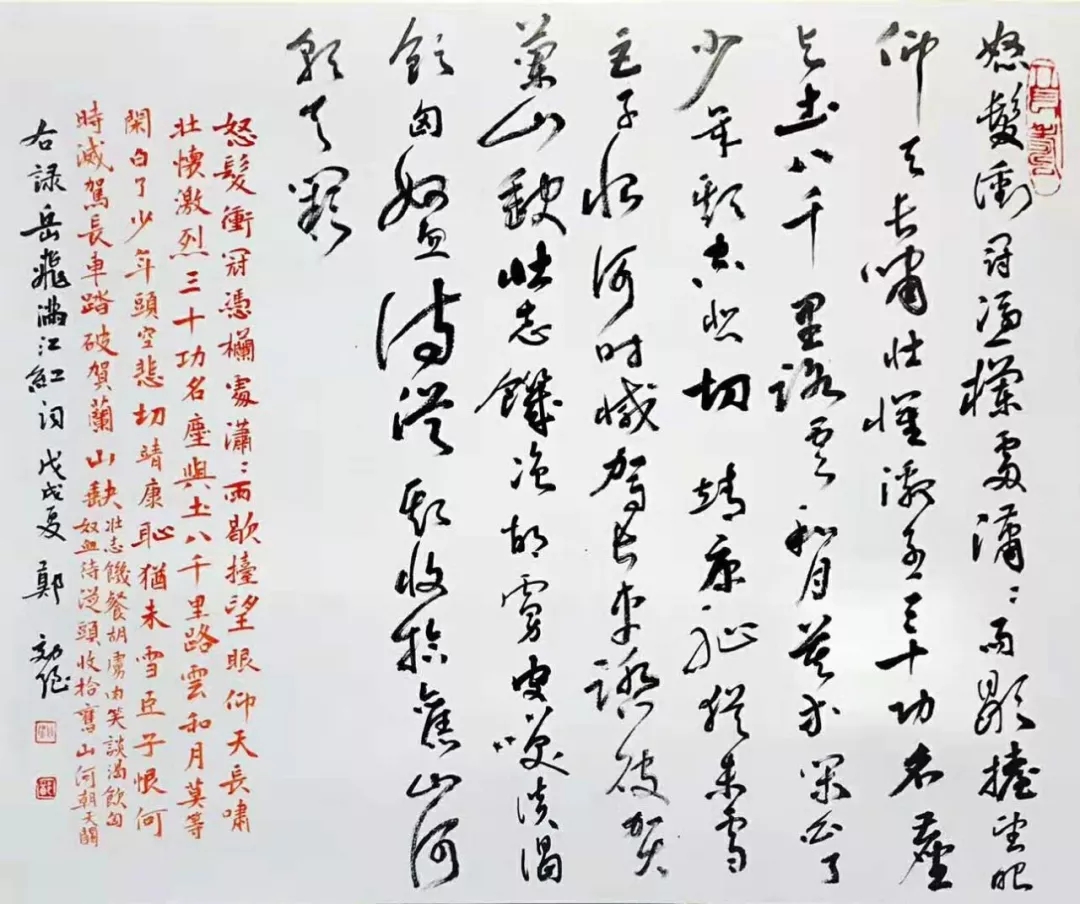 怒髮衝冠憑欄處瀟〻雨歇擡望眼
仰天長嘯壯懷激烈三十功名塵
與土八千里路雲和月莫等閑白了
少年頭空悲切靖康恥猶未雪
臣子恨何時滅駕長車踏破賀
蘭山缺壯志饑飡胡虜肉笑談渴
飲匈奴血待從頭收拾舊山河
朝天闕
怒髮衝冠憑欄處瀟〻雨歇擡望眼仰天長嘯
壯懷激烈三十功名塵與土八千里路雲和月莫等
閑白了少年頭空悲切靖康恥猶未雪臣子恨何
時滅駕長車踏破賀蘭山缺壯志饑餐胡虜肉笑談渴飲匈
奴血待從頭收拾舊山河朝天闕
右録岳飛滿江紅詞戊戌夏鄭